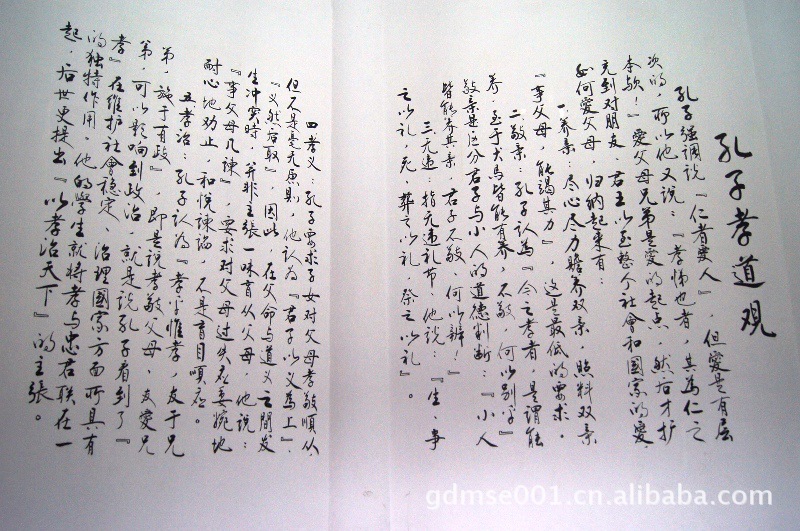 孔子孝道观
孔子强调说『仁者爱人』，但愛是有层
次的，所以他又说：『孝悌也者，其為仁之
本欤！』愛父母兄弟是爱的起点，然后才扩
充到对朋友、君王以至整个社會和國家的愛，
如何爱父母，归纳起来有：
一养亲，尽心尽力赡养双亲，照料双亲
『事父母，能竭其力』，这是最低的要求。
二敬亲：孔子认為『今之孝者，是谓能
养，至于犬馬皆能有养，不敬，何以别乎』
敬亲是区分君子与小人的道德判断：『小人
皆能养其亲，君子不敬，何以辨！』
三无违：指无违礼节，他说：『生，事
之以礼，死，葬之以礼，祭之以礼』。
四孝义 孔子要求子女对父母孝敬順从，
但不是毫无原則，他认為『君子以义為上』，
『义然后取』，因此 在父命与道义之間发
生冲突時，并非主張一味盲从父母 他说：
『事父母几谏』，要求对父母过失应委婉地
耐心地劝止，和悦谏諭 不是盲目順应。
五孝治：孔子认為『孝乎惟孝，友于兄
弟，施于有政』即是说孝敬父母、友愛兄
弟，可以影响到政治 就是说孔子看到了『
孝』在维护社會稳定、治理國家方面所具有
的独特作用，他的學生就将孝与忠君联在一
起，后世更提出『以孝治天下』的主張。
gdmse001.cn.alibaba.com